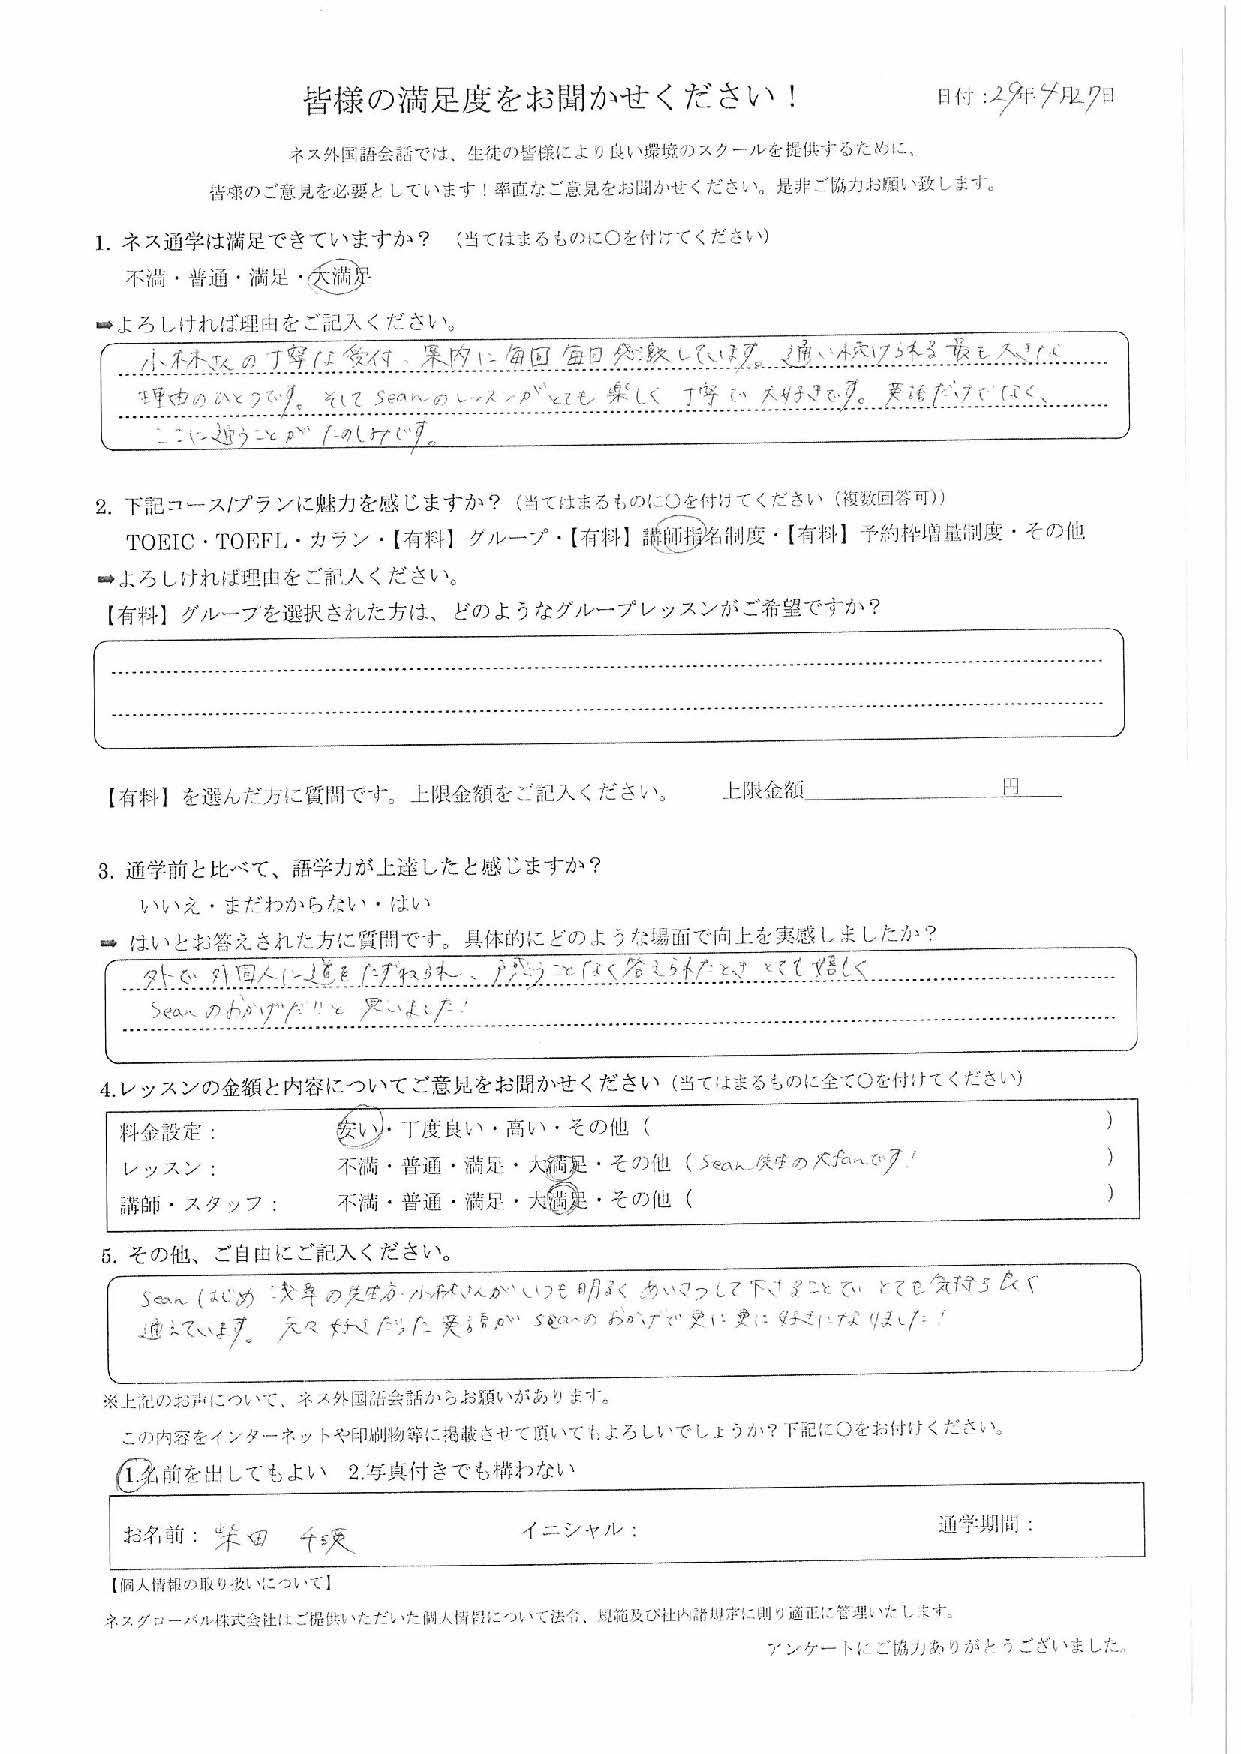 皆様の満足度をお聞かせください！
日付：29年4月27日
ネス外国語会話では、生徒の皆様により良い環境のスクールを提供するために、
皆様のご意見を必要としています！率直なご意見をお聞かせください。是非ご協力お願い致します。
1. ネス通学は満足できていますか？ （当てはまるものに〇を付けてください）
不満・普通・満足・大満足
➡よろしければ理由をご記入ください。
小林さんの丁寧な受付、案内に毎回毎回感激しています。通い続けられる最も大きな
理由のひとつです。そしてSeanのレッスンがとても楽しく丁寧で大好きです。英語だけでなく、
ここに通うことがたのしみです。
2. 下記コース/プランに魅力を感じますか？（当てはまるものに〇を付けてください（複数回答可））
TOEIC・TOEFL・カラン・【有料】グループ・【有料】講師指名制度・【有料】予約枠増量制度・その他
➡よろしければ理由をご記入ください。
【有料】グループを選択された方は、どのようなグループレッスンがご希望ですか？
【有料】を選んだ方に質問です。上限金額をご記入ください。 上限金額 円
3. 通学前と比べて、語学力が上達したと感じますか？
いいえ・まだわからない・はい
➡ はいとお答えされた方に質問です。具体的にどのような場面で向上を実感しましたか？
外で外国人に道をたずねられ、戸惑うことなく答えられたときとても嬉しく
Seanのおかげだ!!と思いました！
4.レッスンの金額と内容についてご意見をお聞かせください（当てはまるものに全て〇を付けてください）
料金設定： 安い・丁度良い・高い・その他（ ）
レッスン： 不満・普通・満足・大満足・その他（Sean先生の大fanです！ ）
講師・スタッフ： 不満・普通・満足・大満足・その他（ ）
5. その他、ご自由にご記入ください。
Seanはじめ浅草の先生方・小林さんがいつも明るくあいさつして下さることでとても気持ち良く
通えています。元々好きだった英語がSeanのおかげで更に更に好きになりました！
※上記のお声について、ネス外国語会話からお願いがあります。
この内容をインターネットや印刷物等に掲載させて頂いてもよろしいでしょうか？下記に〇をお付けください。
1.名前を出してもよい 2.写真付きでも構わない
お名前：柴田 千瑛 イニシャル： 通学期間：
【個人情報の取り扱いについて】
ネスグローバル株式会社はご提供いただいた個人情報について法令、規範及び社内諸規定に則り適正に管理いたします。
アンケートにご協力ありがとうございました。